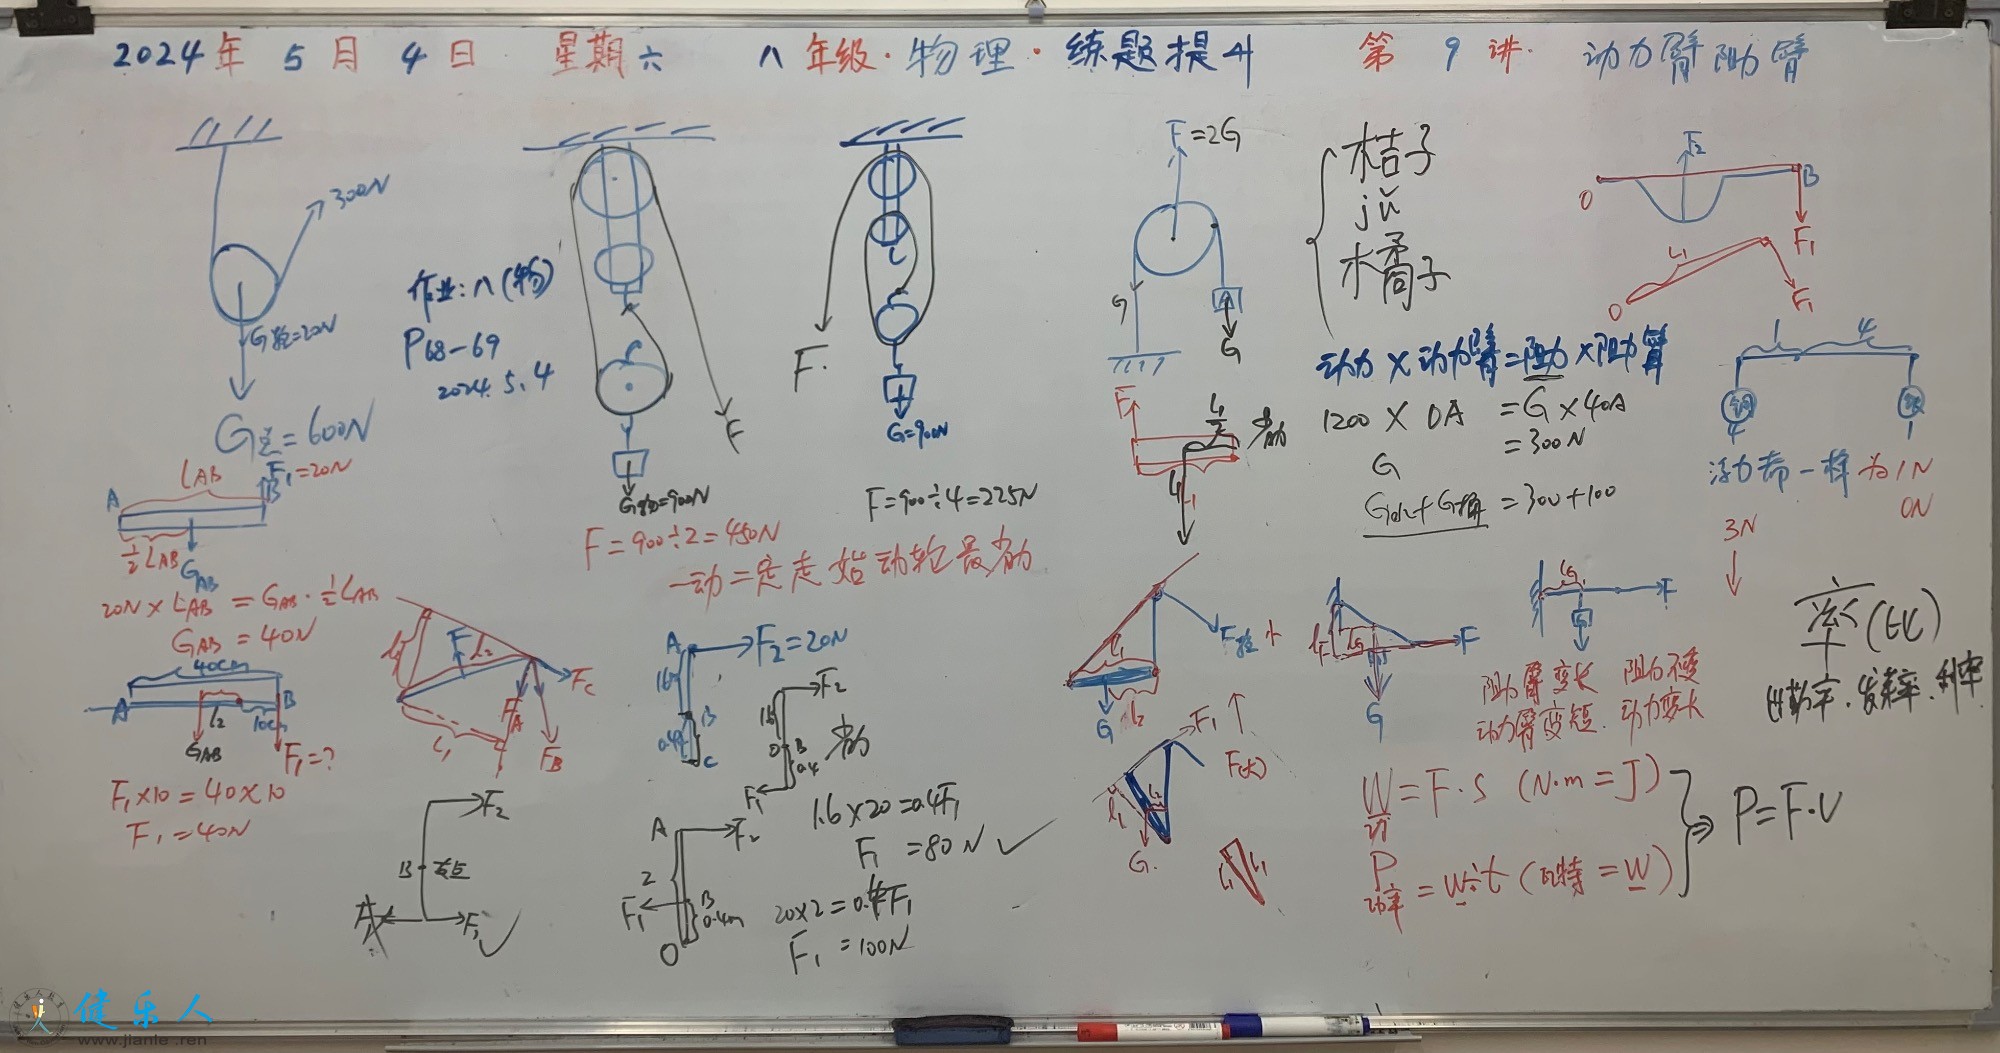 2024年 5月 4日 星期六 八年级·物理·练题提升 第9讲. 动力臂阻力臂
300N
G轮=20N
G总=600N
作业:八(物)
P68-69
2024.5.4
F
G物=900N
F=900÷2=450N
F.
G=900N
F=900÷4=225N
F=2G
G
A
G
F
L1
省力
桔子
jú
橘子
动力×动力臂=阻力×阻力臂
1200 × OA = G×40A
=300N
G
=300+100
F2
O
B
F1
L1
O
F1
1
4
4
1
浮力都一样为1N
0N
3N
LAB
F1=20N
A
B
½LAB
GAB
20N×LAB=GAB·½LAB
GAB=40N
40cm
A
B
l2
10cm
GAB
F1=?
F1×10=40×10
F1=40N
F
l2
FC
FA
FB
L1
一动二定走始动轮最省力
A
F2=20N
B
0.4
C
F2
O
B
0.4
F1
省力
1.6×20=0.4F1
F1=80N✓
F2
B
支点
F1
✓
A
F2
2
F1
B
0.4m
O
20×2=0.4F1
F1=100N
F拉
小
l1
G
l2
F
G
F
G
阻力臂变长 阻力不变
动力臂变短. 动力变大
F1
F(大)
l1
l2
G.
L1
率(比)
出勤率.发芽率.利率
W=F·S (N·m=J)
功
P=W÷t (瓦特=W)
功率
⇒P=F·V
健乐人
www.jianle.ren